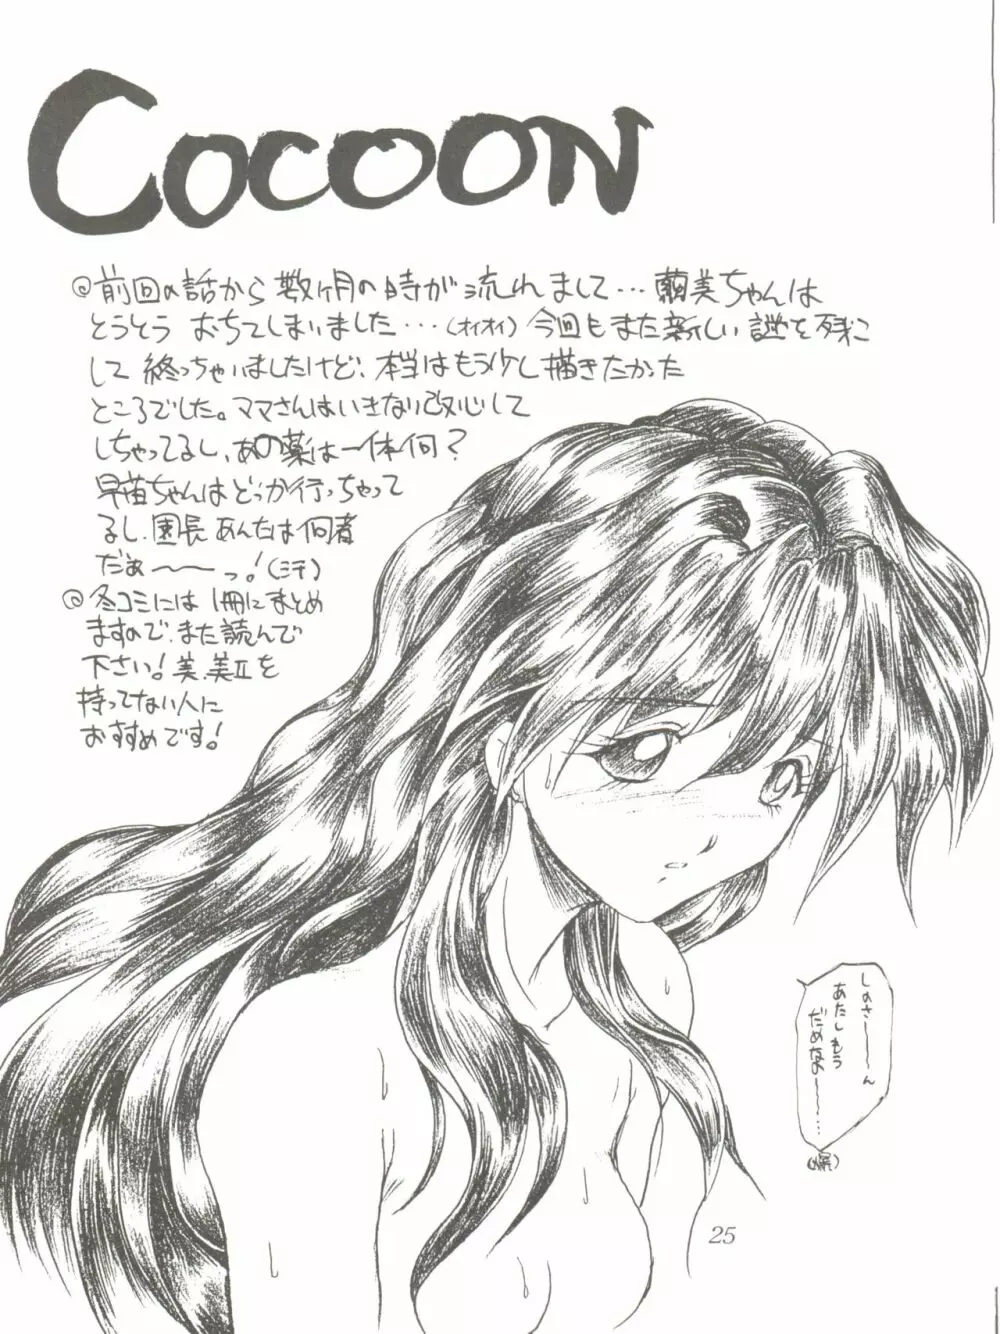 COCOON
◎前回の話から数ヶ月の時が流れまして…繭美ちゃんは
とうとう おちてしまいました…(オイオイ)今回もまた新しい謎を残こ
して 終っちゃいましたけど、本当はもう少し描きたかった
ところでした。ママさんはいきなり改心して
しちゃってるし、あの薬は一体何?
早苗ちゃんはどっか行っちゃって
るし、園長 あんたは何者
だぁ〜〜っ!(ミ千)
◎冬コミには 1冊にまとめ
ますので、また読んで
下さい!美、美Ⅱを
持ってない人に
おすすめです!
しのさ〜〜ん
あたしもう
だめなの〜〜…
(涙)
25